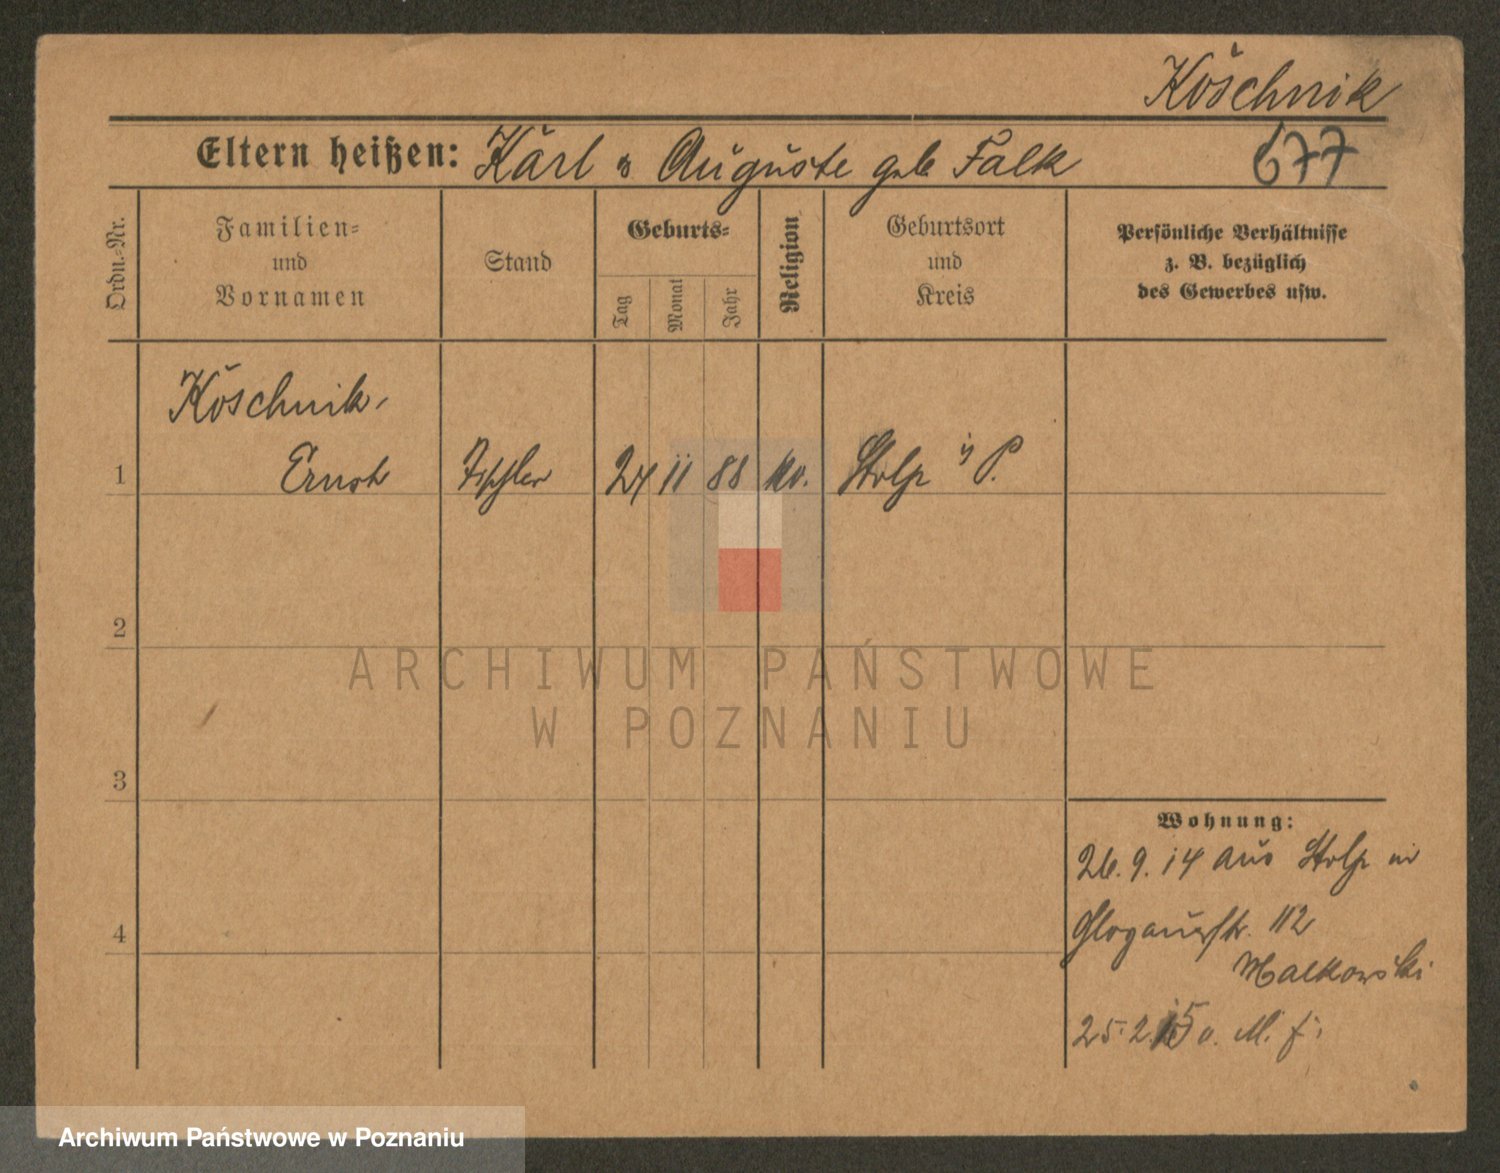 Köschnik
Eltern heißen: Karl u Auguste geb Falk
677
Ordn.-Nr.
Familien-
und
Vornamen
Stand
Geburts-
Tag
Monat
Jahr
Religion
Geburtsort
und
Kreis
Persönliche Verhältnisse
z. B. bezüglich
des Gewerbes usw.
Köschnik,
1 Ernst Tischler 24 11 88 ev. Stolp i/ P.
2
ARCHIWUM PAŃSTWOWE
W POZNANIU
3
Wohnung:
26. 9. 14 aus Stolp in
4
Glogauerstr. 112
Malkowski
25. 2. 15 o. M. f.
Archiwum Państwowe w Poznaniu